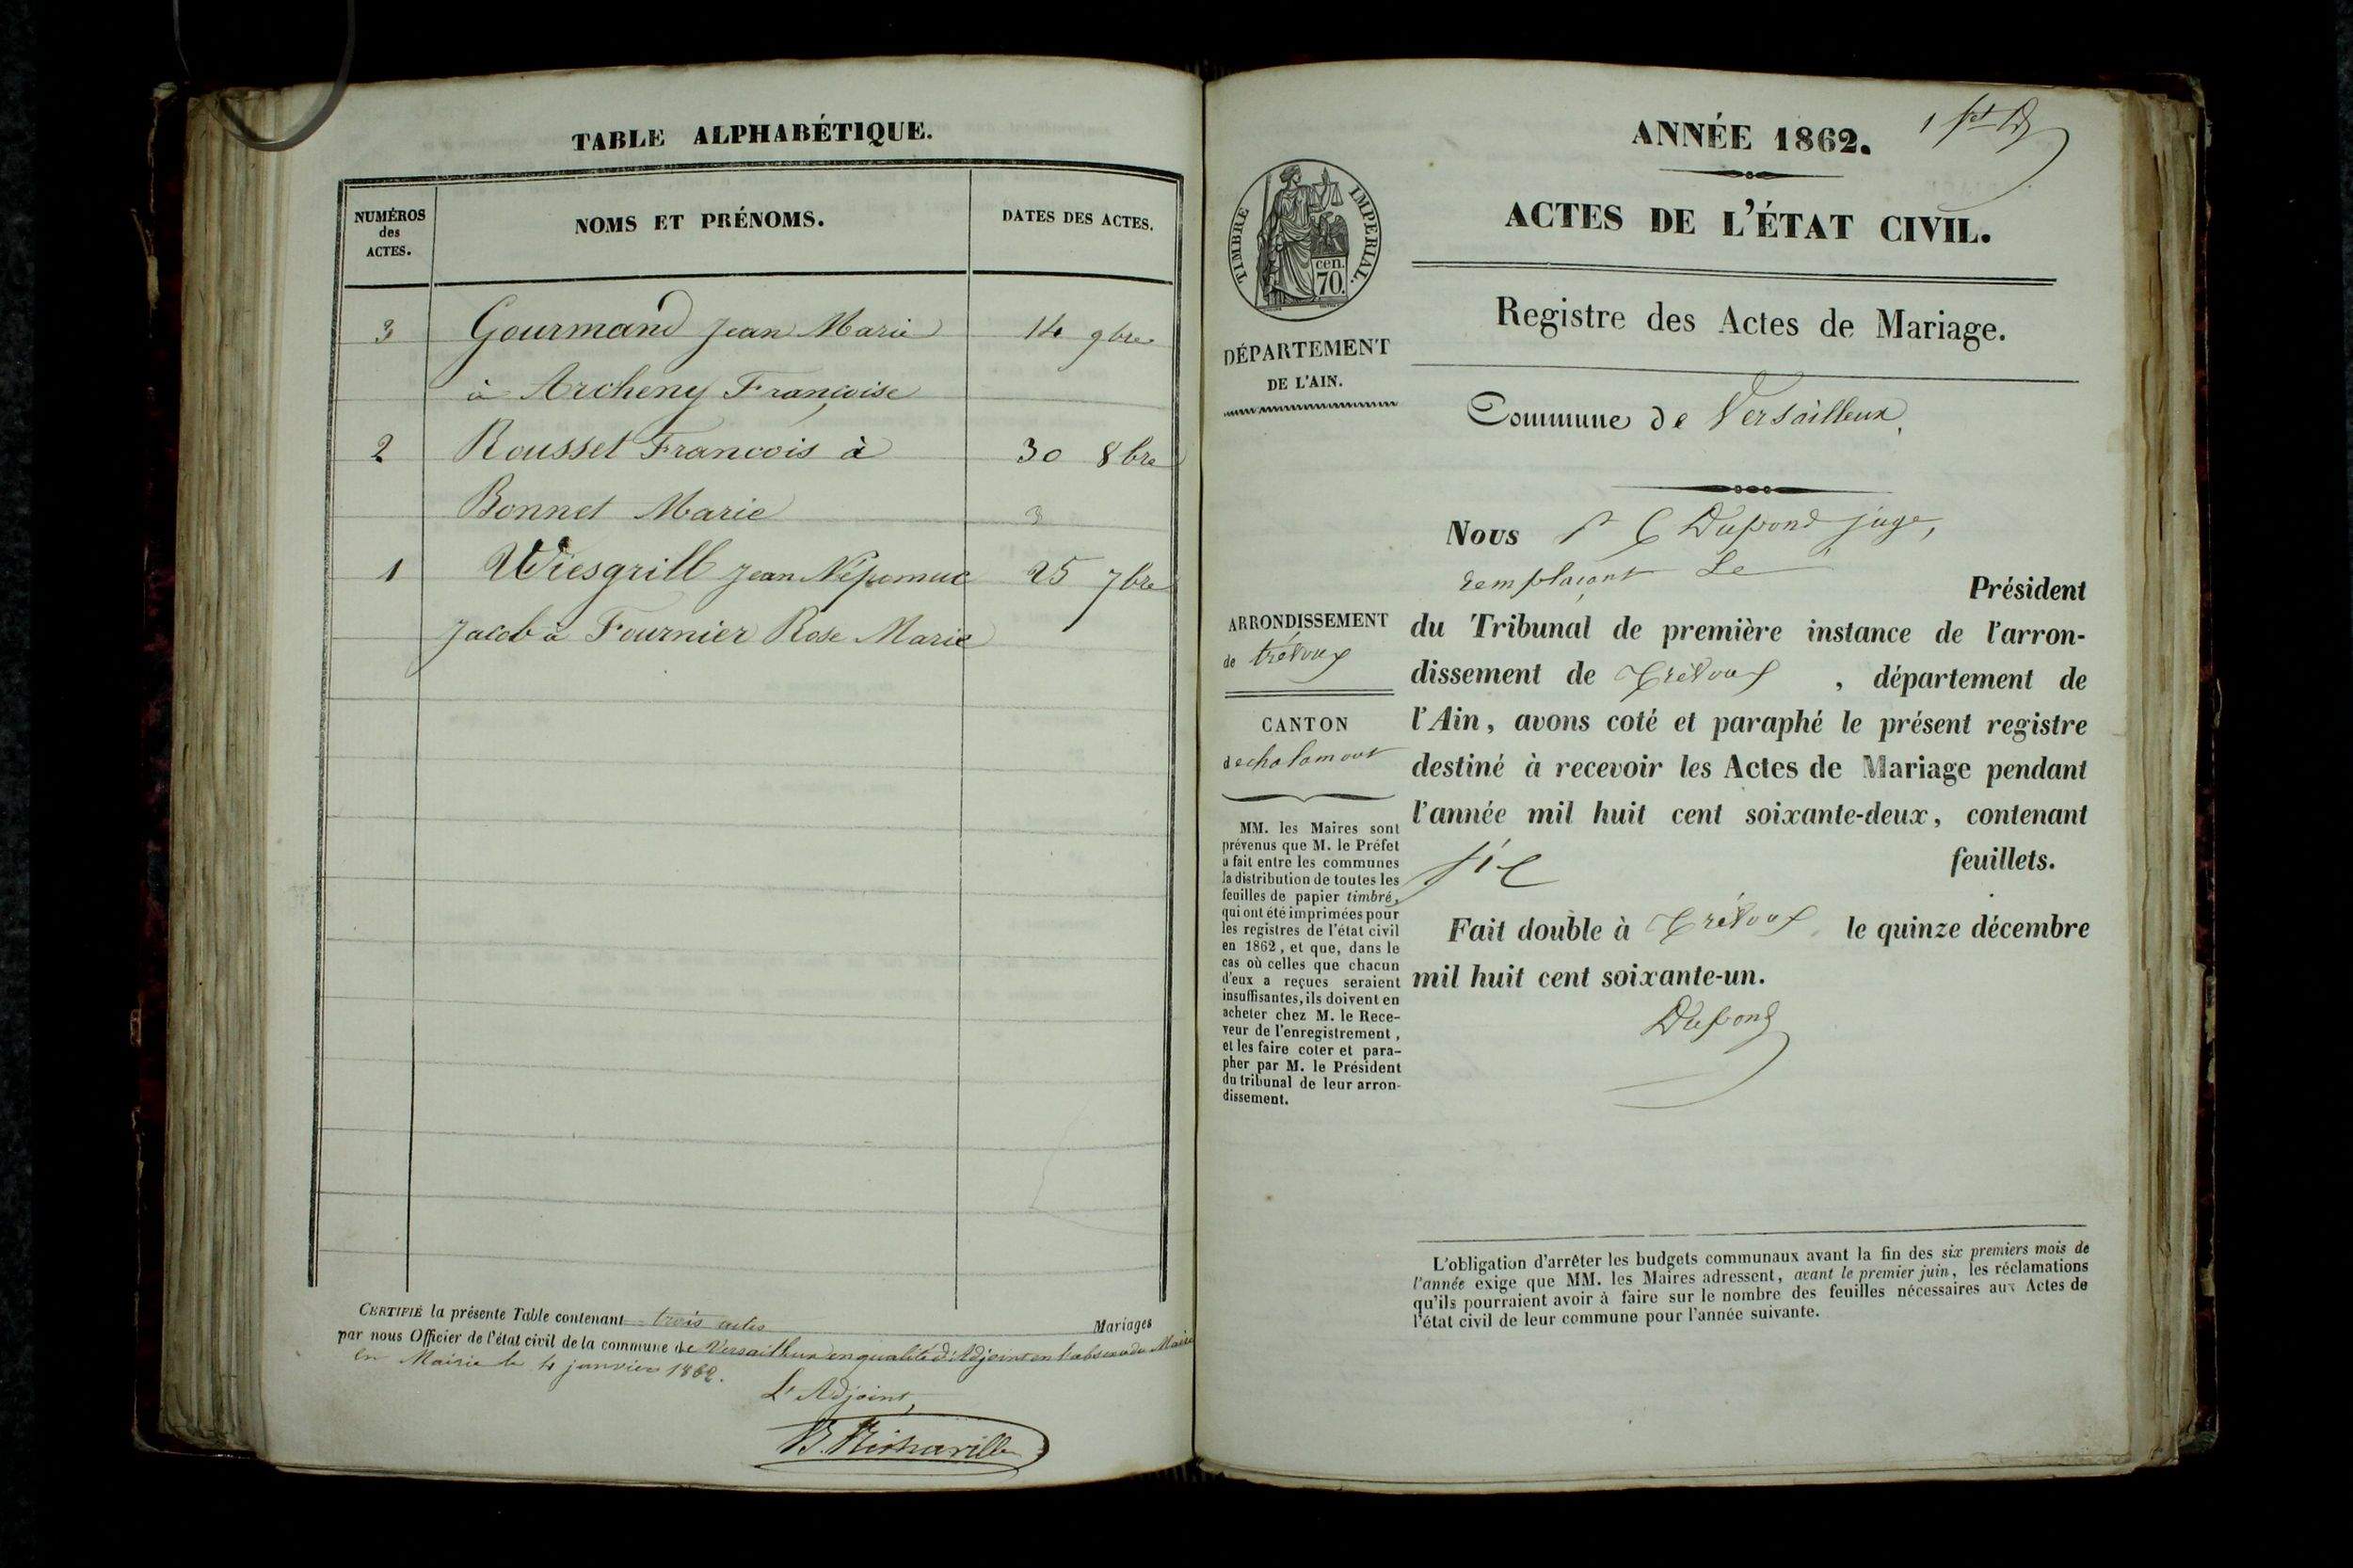 TABLE ALPHABÉTIQUE.
NUMÉROS
des
ACTES.
NOMS ET PRÉNOMS.
DATES DES ACTES.
3 Gourmand Jean Marie 14 9bre
à Archeny Françoise
2 Rousset Francois à 30 8bre
Bonnet Marie 3
1 Wiesgrill Jean Népomuc 25 7bre
Jacob à Fournier Rose Marie
CERTIFIÉ la présente Table contenant trois actes Mariages
par nous Officier de l'état civil de la commune de Versailleux en qualité d'Adjoint en l'absence du Maire
en Mairie le 4 janvier 1862.
L'Adjoint,
ANNÉE 1862.
1
ACTES DE L'ÉTAT CIVIL.
TIMBRE IMPERIAL.
cen.
70.
Registre des Actes de Mariage.
DÉPARTEMENT
DE L'AIN.
Commune de Versailleux.
Nous Dupond juge,
remplaçant Le Président
ARRONDISSEMENT
de trévoux
CANTON
de chalamont
du Tribunal de première instance de l'arron-
dissement de Trévoux, département de
l'Ain, avons coté et paraphé le présent registre
destiné à recevoir les Actes de Mariage pendant
l'année mil huit cent soixante-deux, contenant
six feuillets.
Fait double à Trévoux le quinze décembre
mil huit cent soixante-un.
Dupond
MM. les Maires sont
prévenus que M. le Préfet
a fait entre les communes
la distribution de toutes les
feuilles de papier timbré,
qui ont été imprimées pour
les registres de l'état civil
en 1862, et que, dans le
cas où celles que chacun
d'eux a reçues seraient
insuffisantes, ils doivent en
acheter chez M. le Rece-
veur de l'enregistrement,
et les faire coter et para-
pher par M. le Président
du tribunal de leur arron-
dissement.
L'obligation d'arrêter les budgets communaux avant la fin des six premiers mois de
l'année exige que MM. les Maires adressent, avant le premier juin, les réclamations
qu'ils pourraient avoir à faire sur le nombre des feuilles nécessaires aux Actes de
l'état civil de leur commune pour l'année suivante.